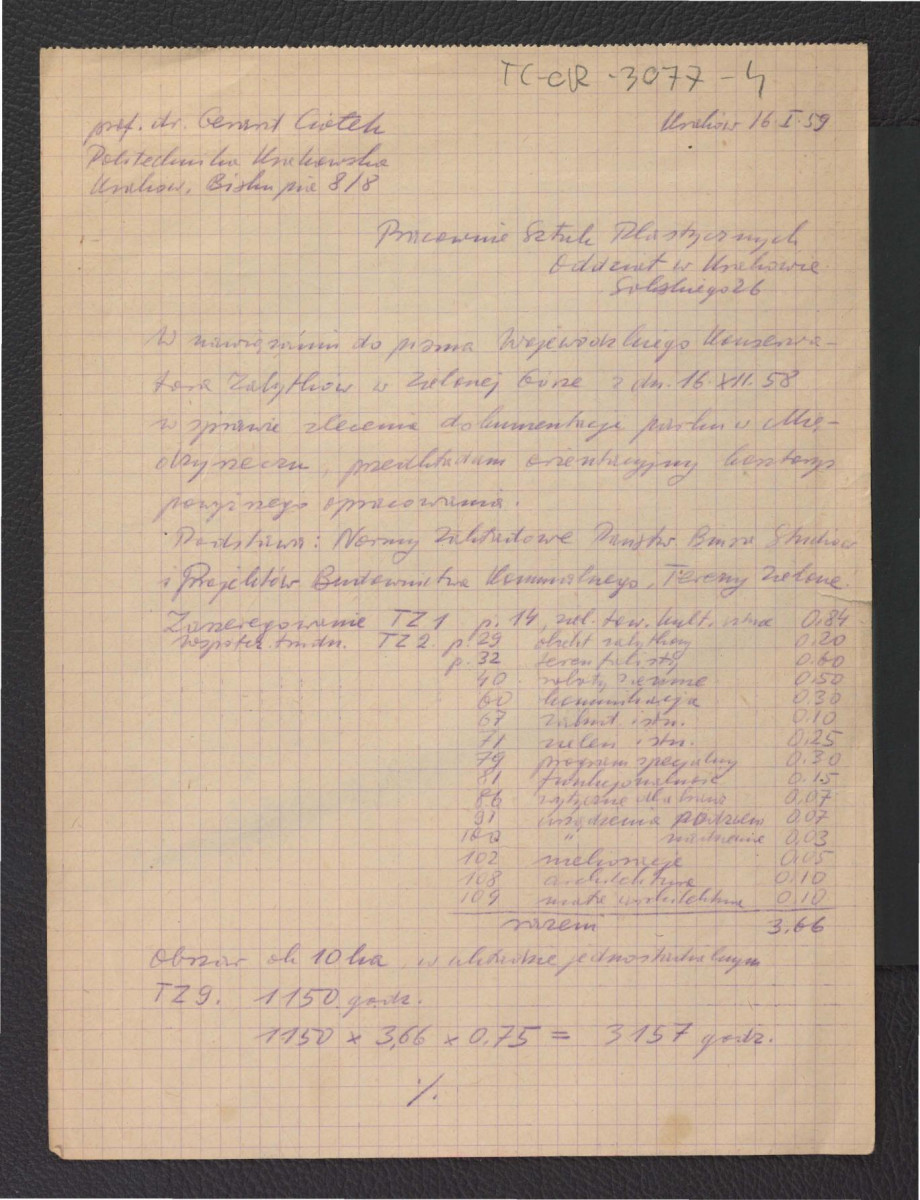 TC-CR-3077-4
prof. dr. Gerard Ciołek
Kraków 16.I.59
Politechnika Krakowska
Kraków, Biskupia 8/8
Pracownie Sztuk Plastycznych
Oddział w Krakowie
Solskiego 26
W nawiązaniu do pisma Wojewódzkiego Konserwa-
tora Zabytków w Zielonej Górze z dn. 16.XII.58
w sprawie zlecenia dokumentacji parku w Mię-
dzyrzeczu, przedkładam orientacyjny kosztorys
powyższego opracowania.
Podstawa: Normy Zakładowe Państw Biura Studiów
i Projektów Budownictwa Komunalnego, Tereny Zielone.
Zaszeregowanie TZ1 p. 14, ziel. tow. kult. 0,84
Współcz. trudn. TZ2 p. 29 obiekt zabytkowy 0.20
p. 32 teren falisty 0.60
40 roboty ziemne 0,50
60 komunikacja 0.30
67 zabud. istn. 0.10
71 zieleń istn. 0,25
79 program specjalny 0.30
81 funkcjonalność 0.15
86 wytyczne dla branż 0,07
91 urządzenia podziem 0,07
100 " nadziemne 0,03
102 melioracje 0,05
108 architektura 0,10
109 mała architektura 0,10
razem 3.66
Obszar ok 10 ha, w układzie jednostadialnym
TZ9. 1150 godz.
1150 x 3,66 x 0.75 = 3157 godz.
./.